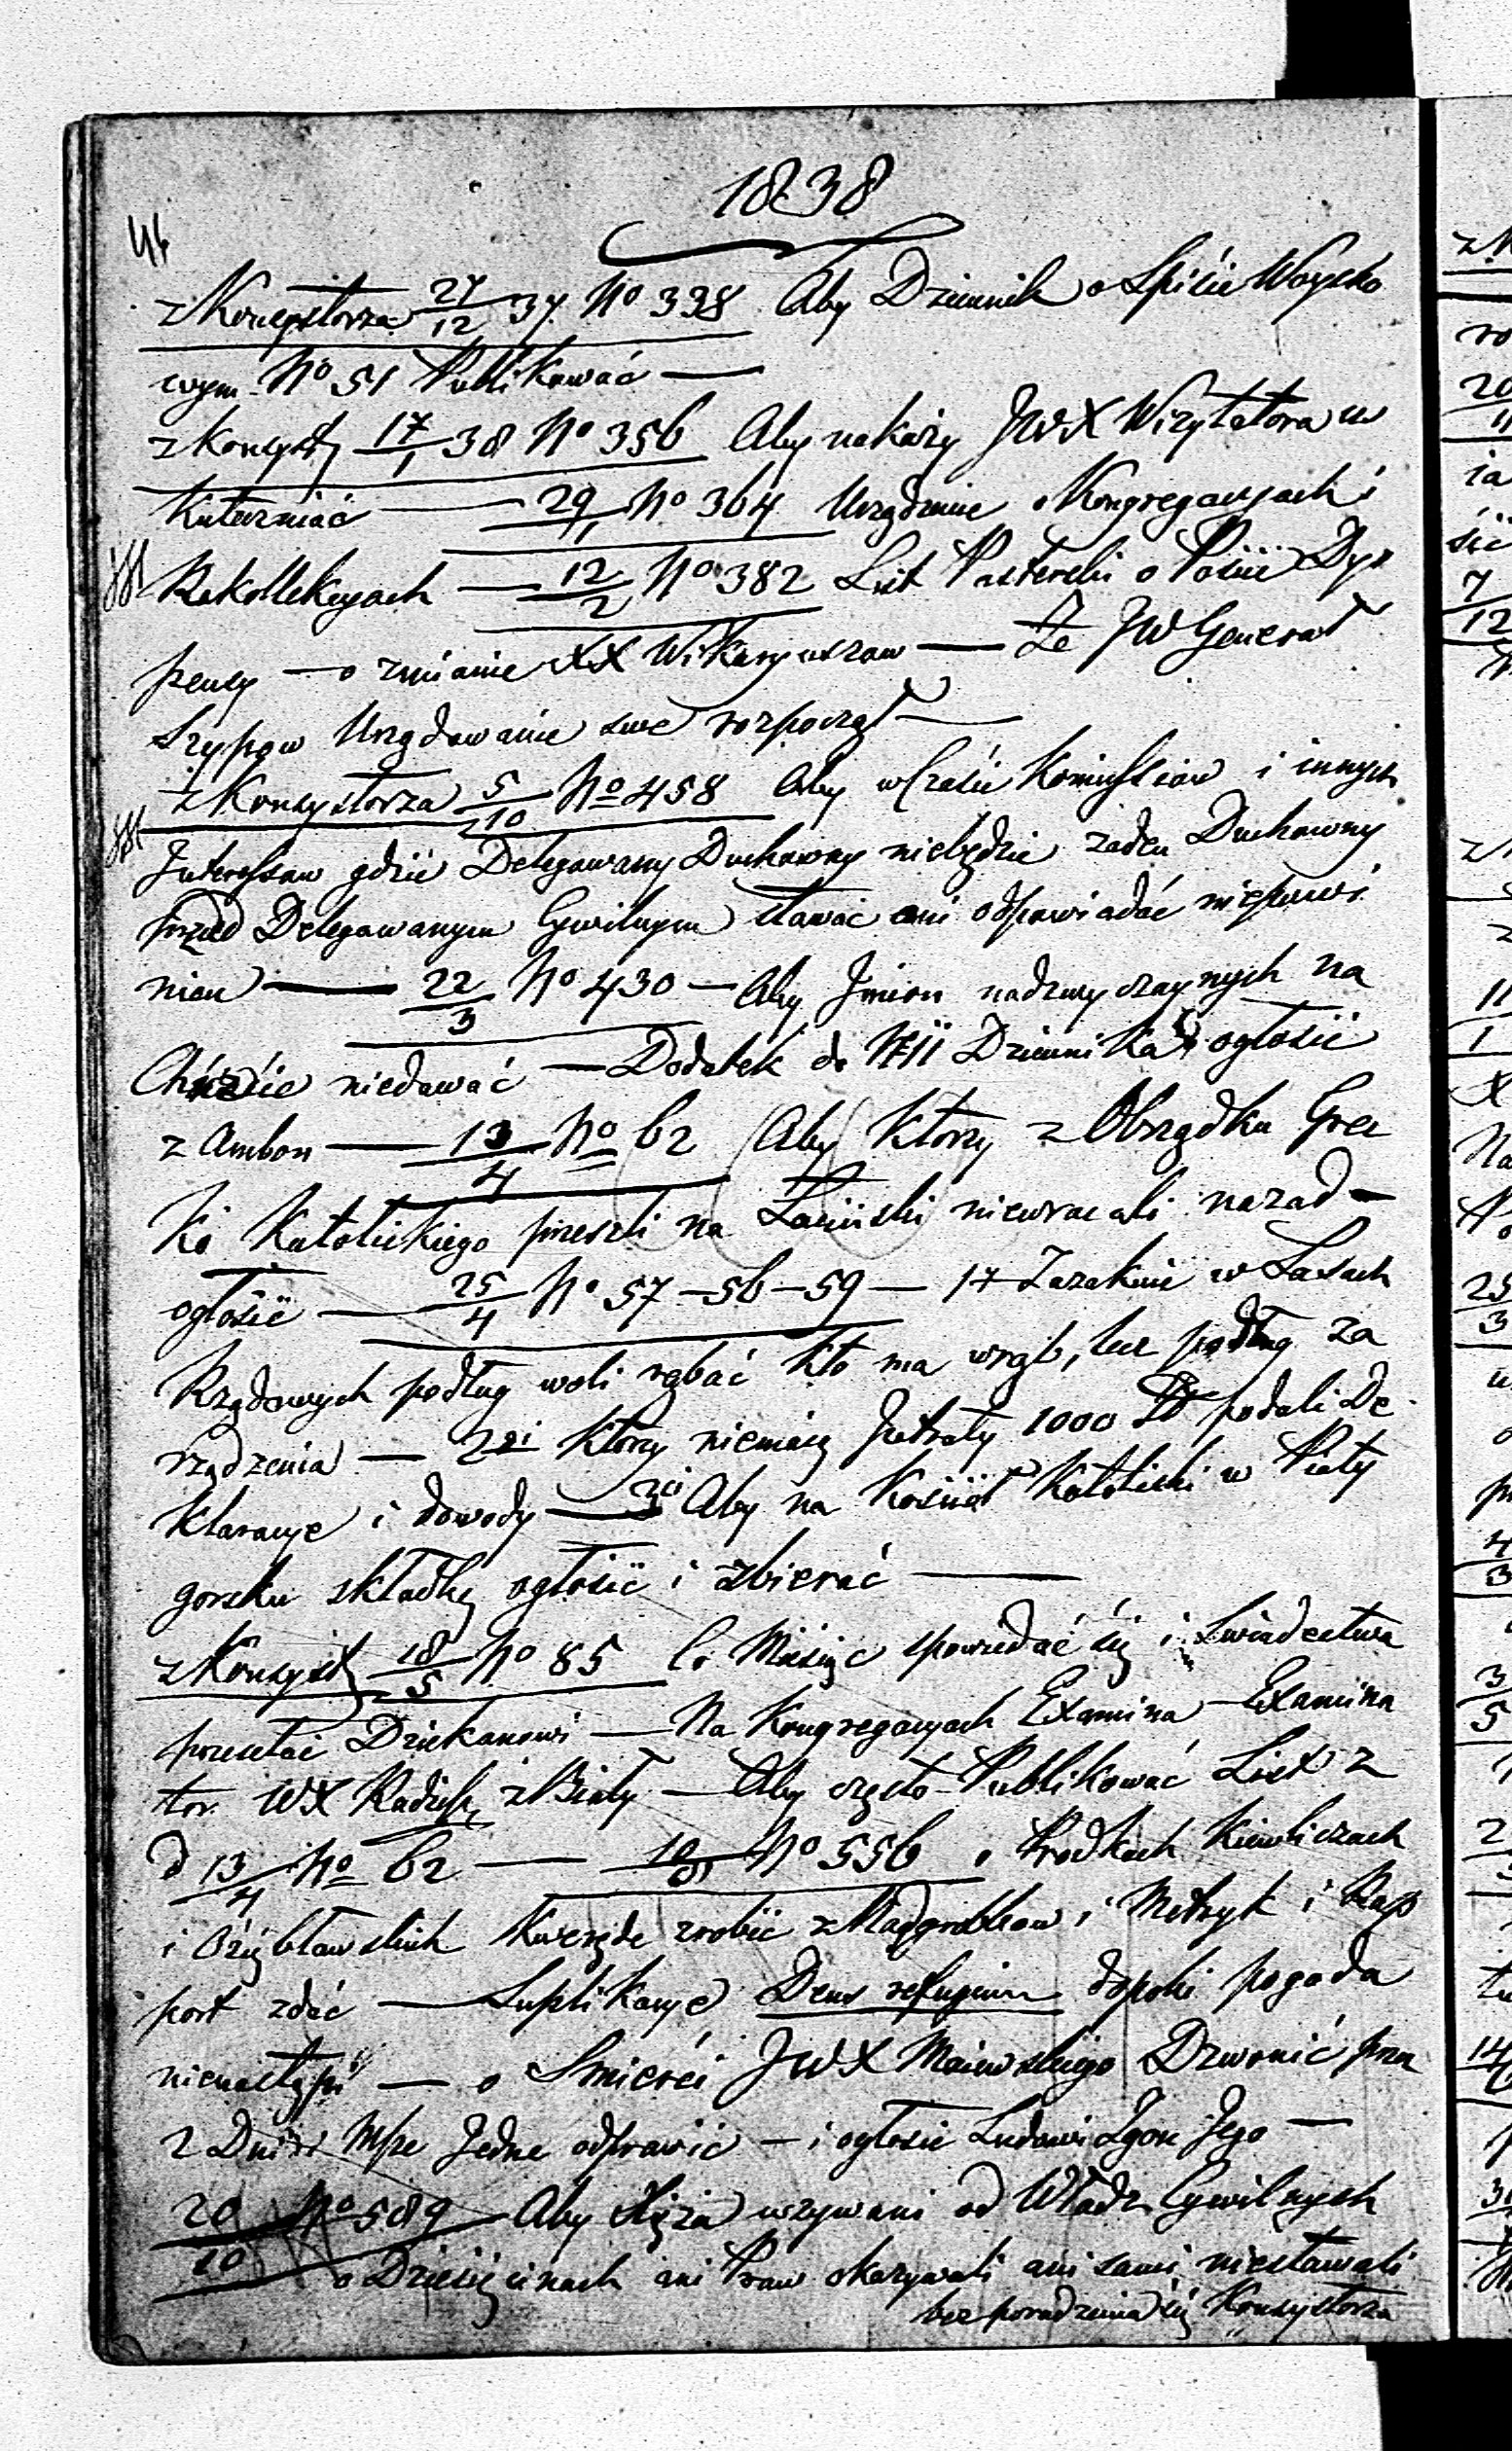 1838
z Konsystorza 27/12 37 No 398 Aby Dziennik o Spisie Woysko
wym No 51 Publikować —
z Konsyst 17/1 38 No 356 Aby nakazy JWX Wizytatora u
kuteczniać — 29/1 No 364 Urządzenie o Kongregacyach i
Rekollekcyach — 12/2 No 382 List Pasterski o Poście Dys
pensy — o zmianie XX Wikaryuszow — Że JW Generał
Szypow Urzędowanie swe rozpoczął —
z Konsystorza 5/10 No 458 Aby w Czasie Kommissiow i innych
Interessow gdzie Delegowany Duchowny niebędzie żaden Duchowny
przed Delegowanym Cywilnym stawać ani odpowiadać niepowi
nien — 22/3 No 430 — Aby Imion nadzwyczaynych na
Chrzcie niedawać — Dodatek do N 11 Dziennika ogłosić
z Ambon — 13/4 No 62 Aby Ktorzy z Obrządku Grec
Ko Katolickiego przeszli na Łaciński niewracali nazad —
ogłosić — 25/4 No 57 – 56 – 59 — w Lasach
Rządowych podług woli rąbać kto ma wrąb, lecz podług za
rządzenia — 2gi Ktorzy niemaią Intraty 1000 Zł podali De
klaracye i dowody — 3ci Aby na Kościoł Katolicki w Piaty
gorsku składkę ogłosić i zbierać —
z Konsyst 18/5 No 85 Co Miesiąc spowiedać się i Swiadectwa
przesełać Dziekanowi — Na Kongregacyach Examina — Examina
tor WX z Biały — Aby często Publikować List z
d 13/4 No 62 — No 556 o Przodkach
i kwerędę zrobić z Nadgrobkow i Metryk i Rap
port zdać — Suplikacye Deus refugium dopoki pogoda
nienastąpi — o Smierći JWX Maiewskiego Dzwonić przez
2 Dni i Mszę Jedne odprawić — i ogłosić Ludowi Zgon Jego —
20/10 No 589 Aby Xięża wzywani od Władz Cywilnych
o Dziesięcinach ani Praw okazywali ani sami niestawali
bez poradzenia się Konsystorza